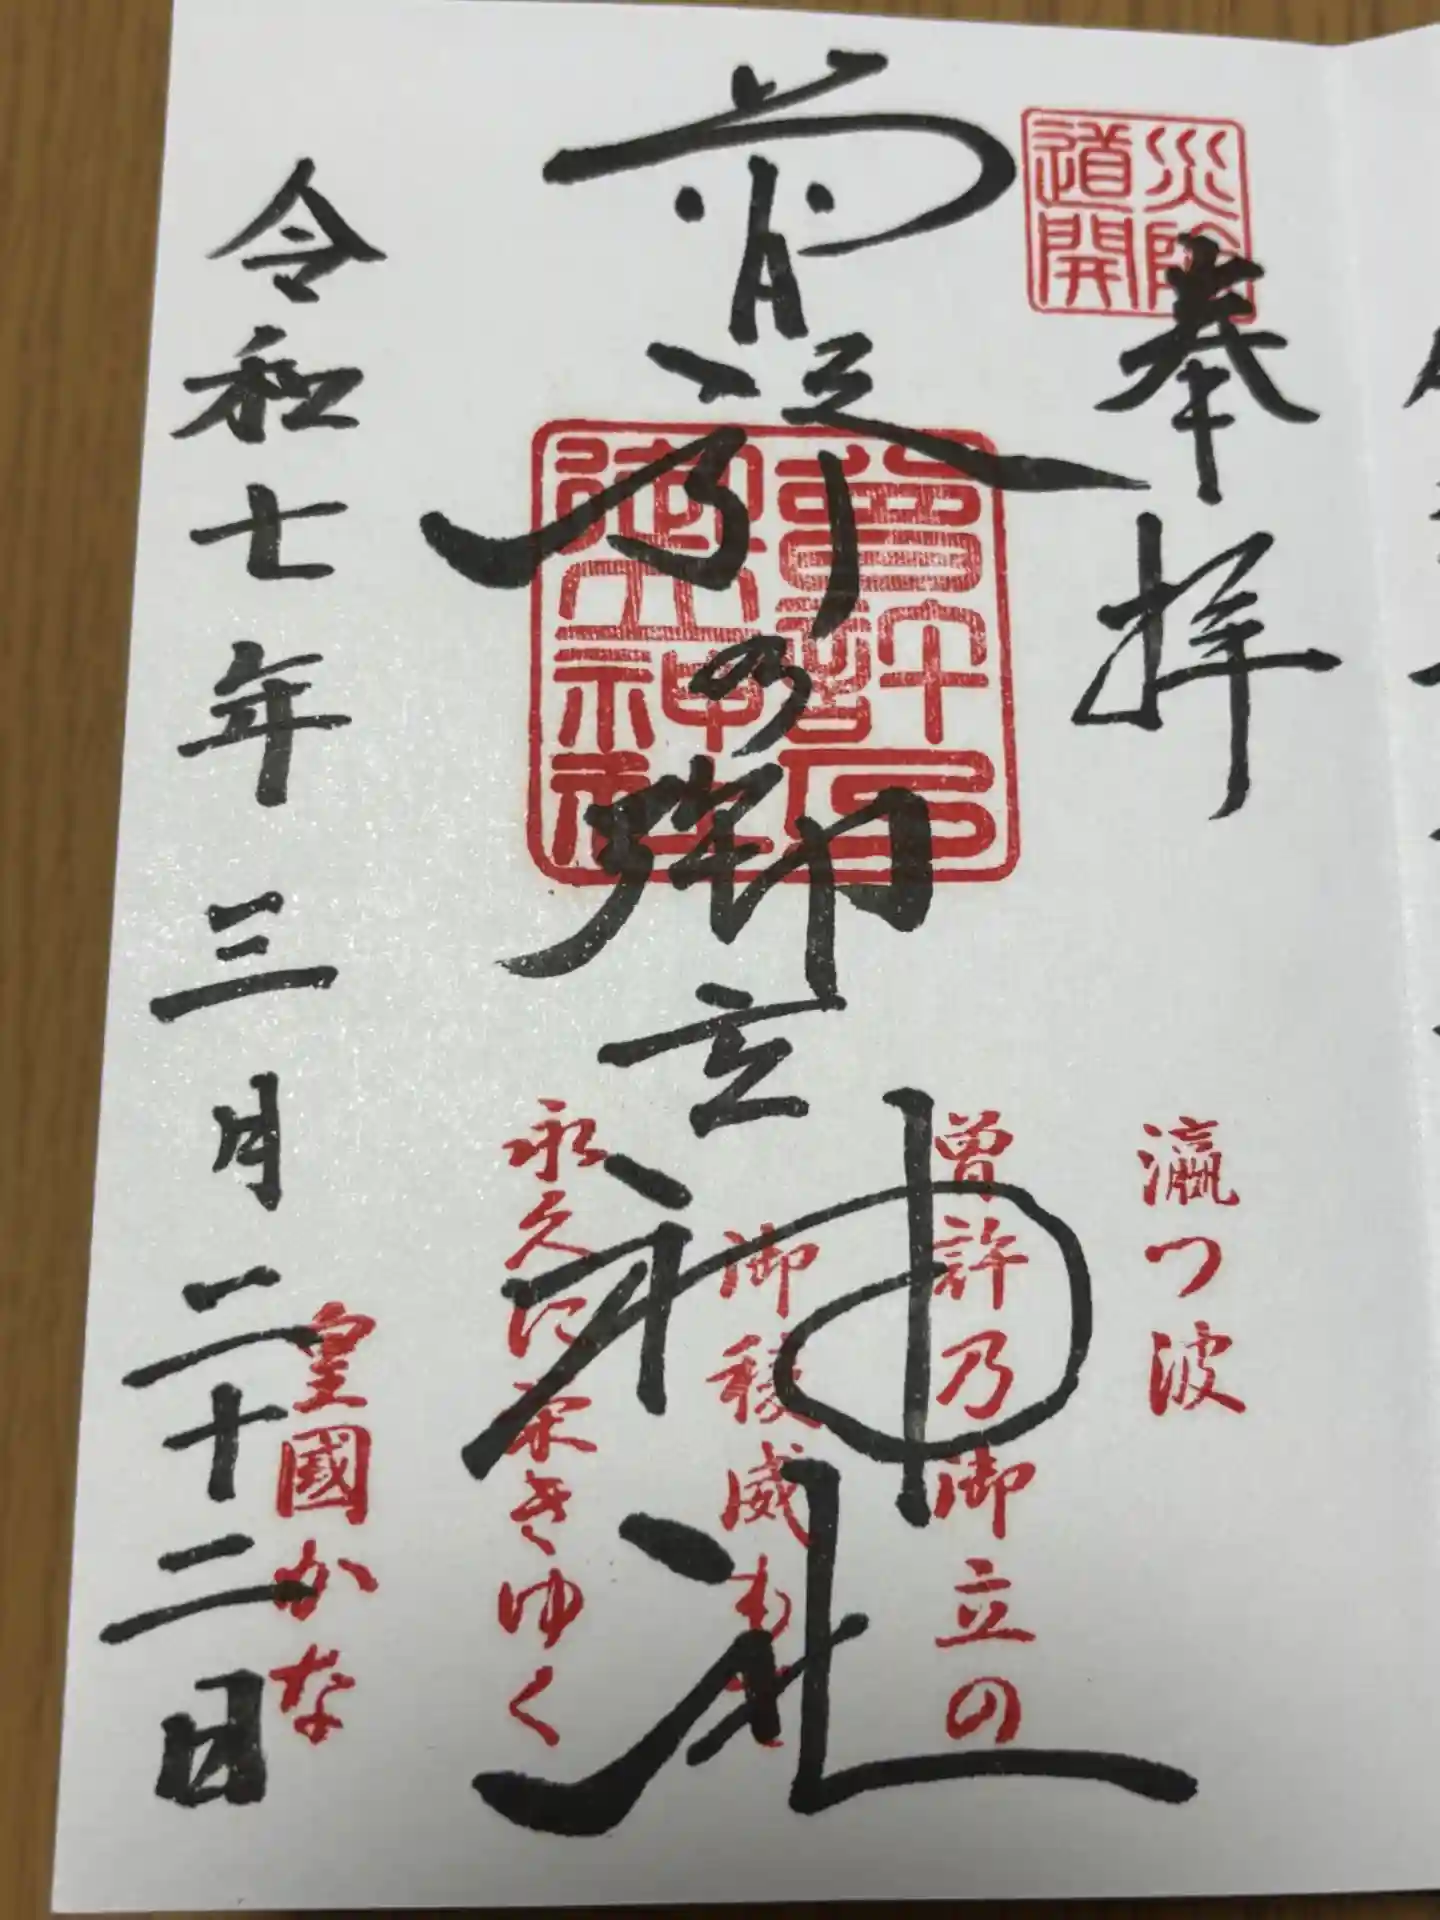 災除
道開
奉拝
曽許乃御立神社
曽許乃
御立神社
令和七年三月二十二日
瀛つ波
曽許乃御立の
御稜威も
永久に栄きゆく
皇國かな